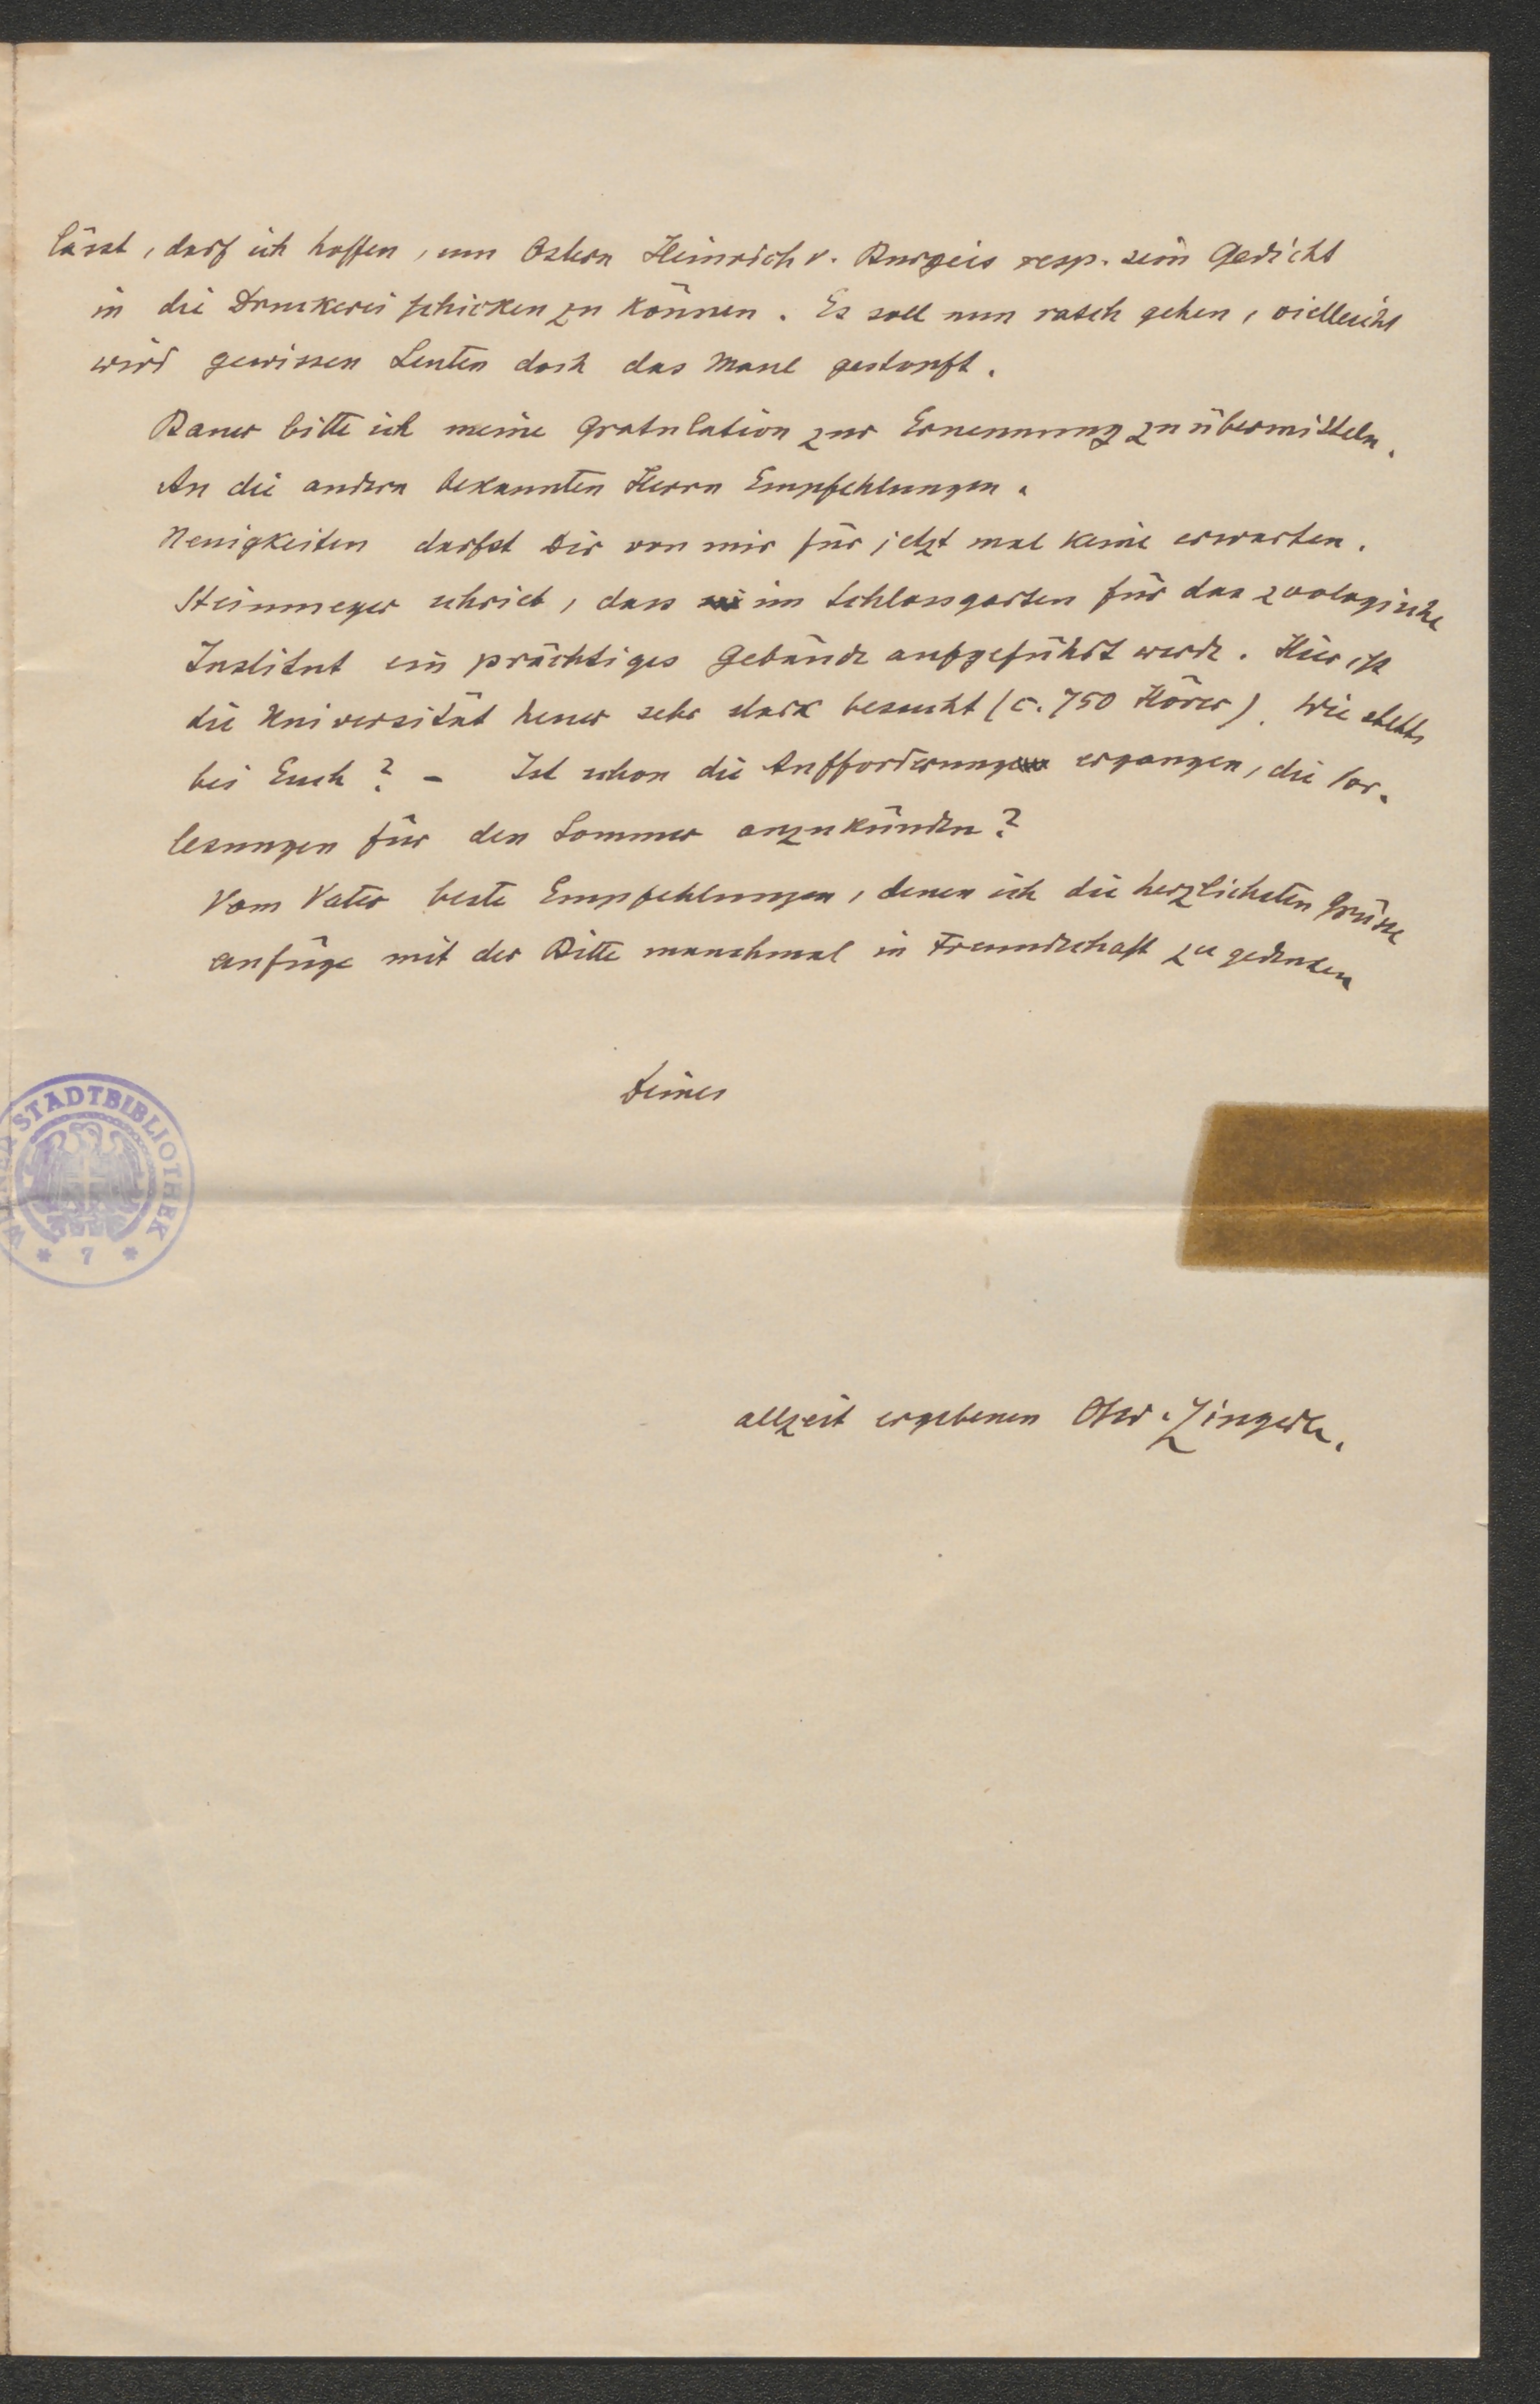 lässt, darf ich hoffen, um Ostern Heinrich v. Burgeis resp. sein Gedicht
in die Druckerei schicken zu können. Es soll nun rasch gehen, vielleicht
wird gewissen Leuten doch das Maul gestopft.
Bauer bitte ich meine Gratulation zur Ernennung zu übermitteln.
An die andern bekannten Herrn Empfehlungen.
Neuigkeiten darfst Dir von mir für jetzt mal keine erwarten.
Steinmeyer schrieb, dass im Schlossgarten für das zoologische
Institut ein prächtiges Gebäude aufgeführt werde. Hier ist
die Universität heuer sehr stark besucht (c. 750 Hörer). Wie stehts
bei Euch? – Ist schon die Aufforderung ergangen, die Vor-
lesungen für den Sommer anzukünden?
Vom Vater beste Empfehlungen, denen ich die herzlichsten Grüsse
anfüge mit der Bitte manchmal in Freundschaft zu gedenken
Deines
STADTBIBLIOTHEK
* 7 *
allzeit ergebenen Osw. Zingerle.